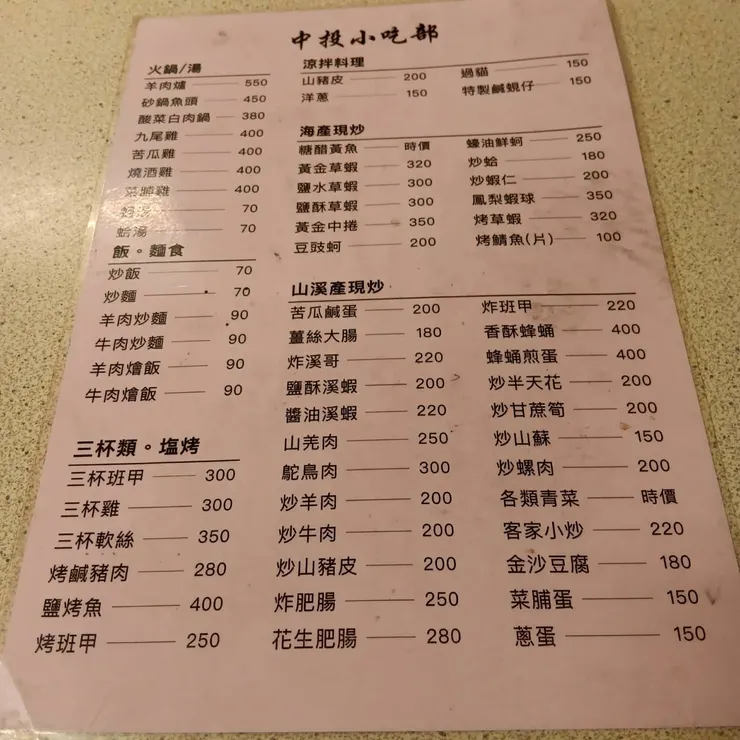 中投小吃部
火鍋/湯
羊肉爐 550
砂鍋魚頭 450
酸菜白肉鍋 380
九尾雞 400
苦瓜雞 400
燒酒雞 400
菜脯雞 400
湯 70
蛤湯 70
飯。麵食
炒飯 70
炒麵 70
羊肉炒麵 90
牛肉炒麵 90
羊肉燴飯 90
牛肉燴飯 90
三杯類。塩烤
三杯班甲 300
三杯雞 300
三杯軟絲 350
烤鹹豬肉 280
鹽烤魚 400
烤班甲 250
涼拌料理
山豬皮 200
洋蔥 150
過貓 150
特製鹹蜆仔 150
海產現炒
糖醋黃魚 時價
黃金草蝦 320
鹽水草蝦 300
鹽酥草蝦 300
黃金中捲 350
豆豉蚵 200
蠔油鮮蚵 250
炒蛤 180
炒蝦仁 200
鳳梨蝦球 350
烤草蝦 320
烤鯖魚(片) 100
山溪產現炒
苦瓜鹹蛋 200
薑絲大腸 180
炸溪哥 220
鹽酥溪蝦 200
醬油溪蝦 220
山羌肉 250
鴕鳥肉 300
炒羊肉 200
炒牛肉 200
炒山豬皮 200
炸肥腸 250
花生肥腸 280
炸班甲 220
香酥蜂蛹 400
蜂蛹煎蛋 400
炒半天花 200
炒甘蔗筍 200
炒山蘇 150
炒螺肉 200
各類青菜 時價
客家小炒 220
金沙豆腐 180
菜脯蛋 150
蔥蛋 150